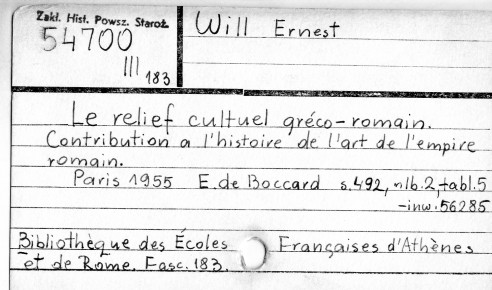 Zakł. Hist. Powsz. Staroż.
54700
III 183
Will Ernest
Le relief cultuel gréco-romain.
Contribution a l'histoire de l'art de l'empire
romain.
Paris 1955 E. de Boccard s. 492, nlb. 2, tabl. 5
-inw. 56285
Bibliothèque des Écoles Françaises d'Athènes
et de Rome. Fasc. 183.